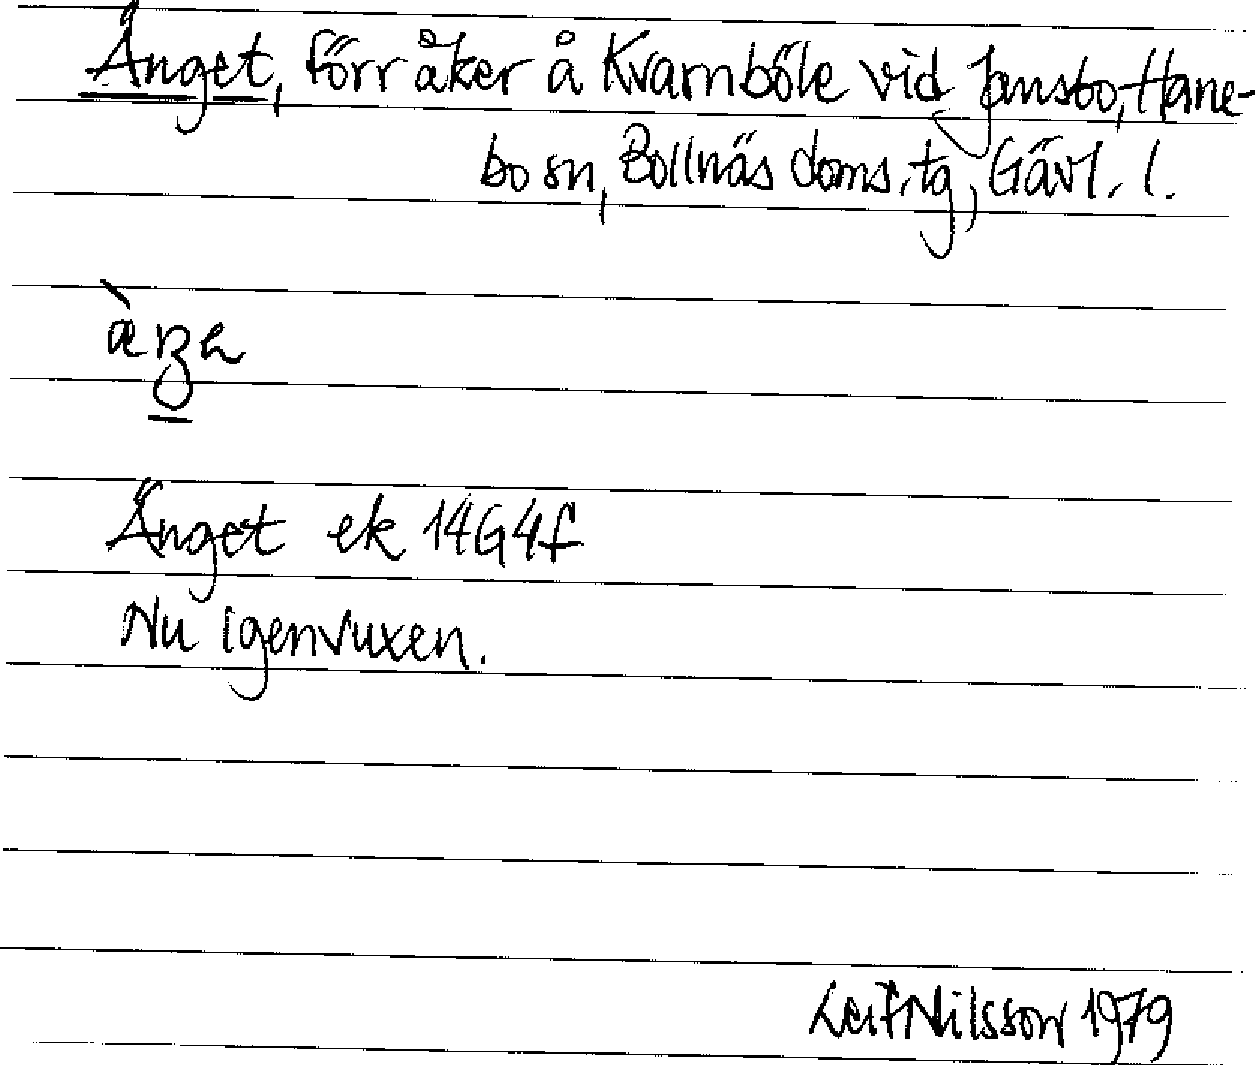 Änget, förr åker å Kvarnböle vid Jansbo, Hane-
bo sn, Bollnäs doms. tg, Gävl. l.
Änget ek 14G4f
Nu igenvuxen.
Leif Nilsson 1979